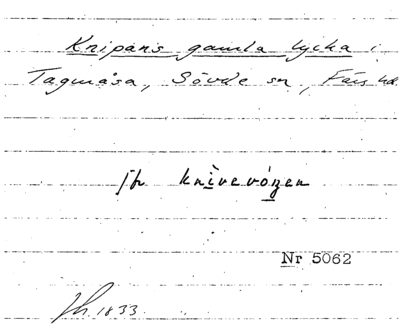 Knipåns gamla lycka i
Tagmåsa, Sövde sn, Färs hd.
Jfr knìvevózen
Nr 5062
1833